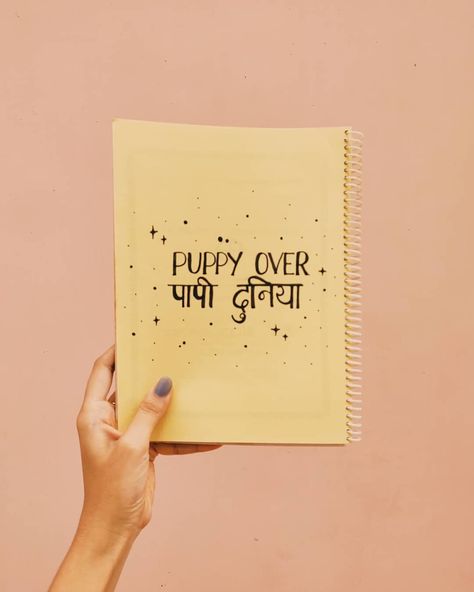 PUPPY OVER
पापी दुनिया